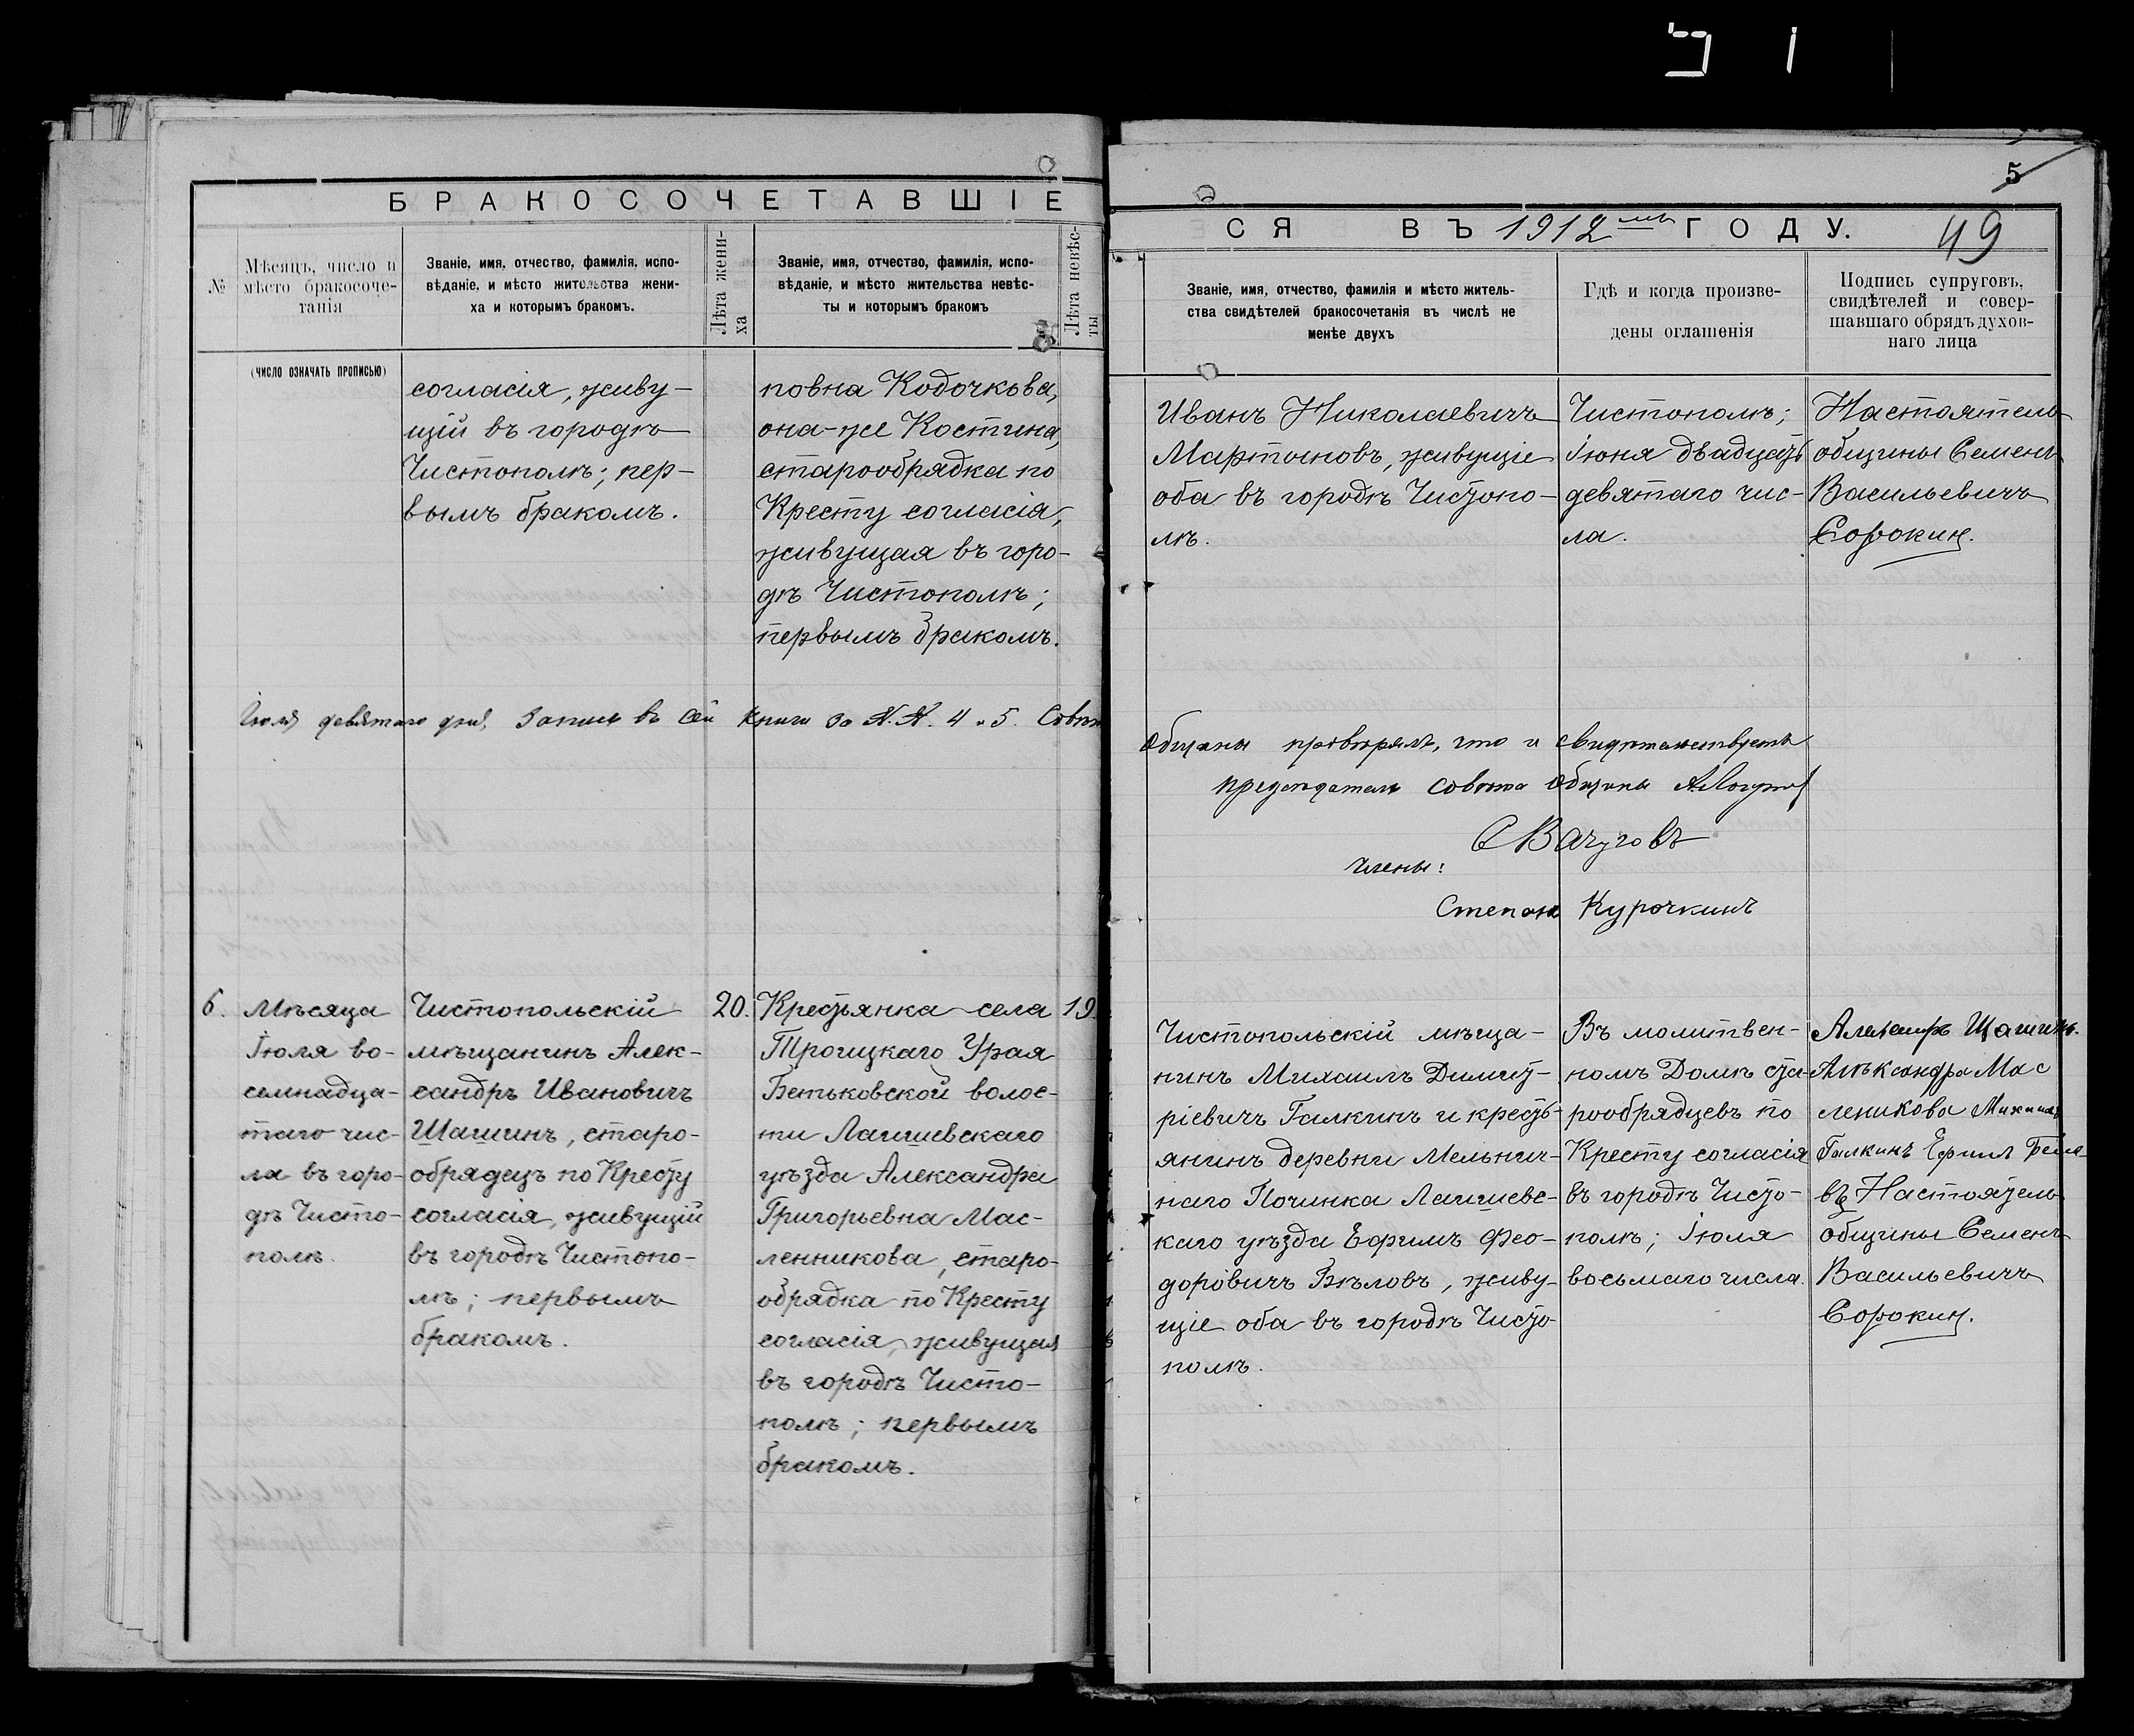 5
БРАКОСОЧЕТАВШІЕ
СЯ ВЪ 1912мъ ГОДУ.
49
№
Мѣсяцъ, число и
мѣсто бракосоче-
танія
Званіе, имя, отчество, фамилія, испо-
вѣданіе, и мѣсто жительства жени-
ха и которымъ бракомъ.
Лѣта жени-
ха
Званіе, имя, отчество, фамилія, испо-
вѣданіе, и мѣсто жительства невѣс-
ты и которымъ бракомъ
Лѣта невѣс-
ты
Званіе, имя, отчество, фамилія и мѣсто житель-
ства свидѣтелей бракосочетанія въ числѣ не
менѣе двухъ
Гдѣ и когда произве-
дены оглашенія
Подпись супруговъ,
свидѣтелей и совер-
шавшаго обрядъ духов-
наго лица
(ЧИСЛО ОЗНАЧАТЬ ПРОПИСЬЮ)
согласія, живу-
щій въ городѣ
Чистополѣ; пер-
вымъ бракомъ.
повна Кодочкова,
она-же Костина,
старообрядка по
Кресту согласія,
живущая въ горо-
дѣ Чистополѣ;
первымъ бракомъ.
Иванъ Николаевичъ
Мартыновъ, живущіе
оба въ городѣ Чистопо-
лѣ.
Чистополѣ;
Іюня двадцать
девятаго чис-
ла.
Настоятель
общины Семенъ
Васильевичъ
Сорокин.
Іюля девятаго дня, запись въ сей книги за №.№. 4 и 5. Совѣтъ
Общины провѣрялъ, что и свидѣтельствуетъ
предсѣдатель Совѣта Общины
С Вачуговъ
Члены:
Степанъ Курочкинъ
6.
Мѣсяца
Іюля во-
семнадца-
таго чис-
ла въ горо-
дѣ Чисто-
полѣ.
Чистопольскій
мѣщанинъ Алек-
сандръ Ивановичъ
Шашинъ, старо-
обрядецъ по Кресту
согласія, живущій
въ городѣ Чистопо-
лѣ; первымъ
бракомъ.
20.
Крестьянка села
Троицкаго Урая
Бетьковской волос-
ти Лаишевскаго
уѣзда Александра
Григорьевна Мас-
ленникова, старо-
обрядка по Кресту
согласія, живущая
въ городѣ Чисто-
полѣ; первымъ
бракомъ.
19.
Чистопольскій мѣща-
нинъ Михаилъ Димит-
ріевичъ Галкинъ и кресть-
янинъ деревни Мельнич-
наго Починка Лаишевс-
каго уѣзда Ефимъ Фео-
доровичъ Бѣловъ, живу-
щіе оба въ городѣ Чисто
полѣ.
Въ молитвен-
номъ Домѣ ста-
рообрядцевъ по
Кресту согласія
въ городѣ Чисто-
полѣ; Іюля
восьмаго числа.
Александръ Шашинъ.
Алѣксандра Мас
леникова Михаилъ
Галкинъ Ефимъ Бела
въ Настоятель
общины Семенъ
Васильевичъ
Сорокин.